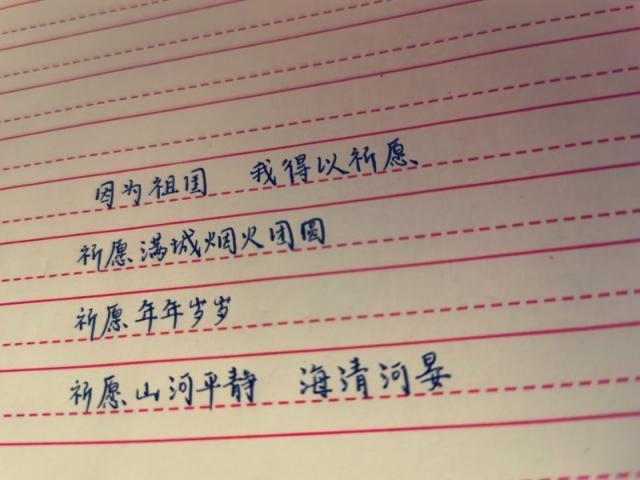 因为祖国 我得以祈愿
祈愿满城烟火团圆
祈愿年年岁岁
祈愿山河平静 海清河晏